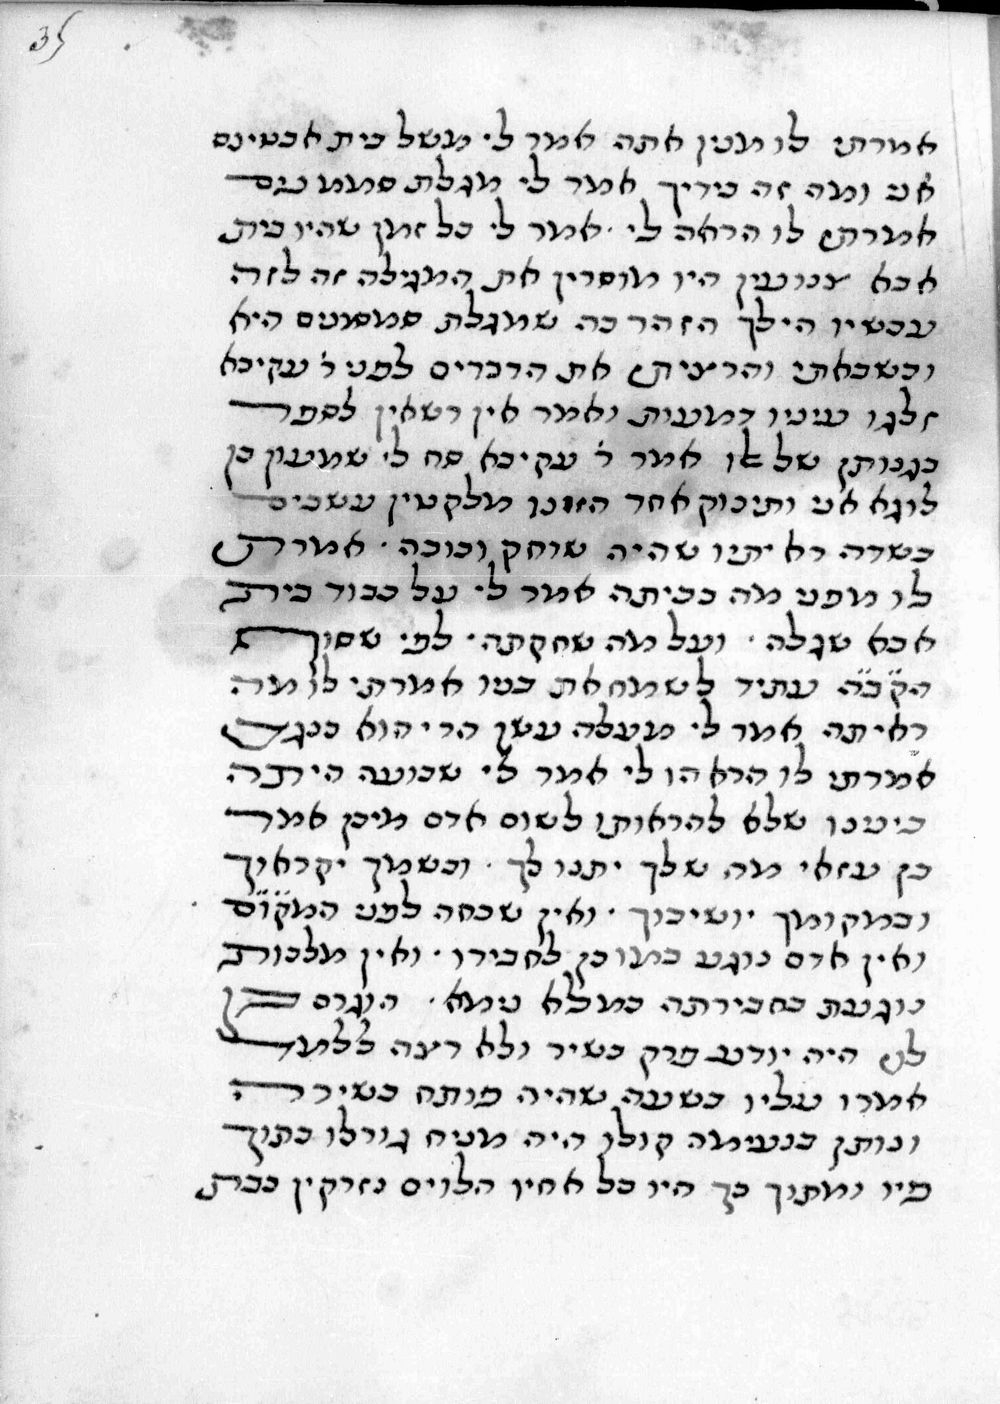 35
אמרתי לו מנין אתה אמר לי משל בית אבטינס
אני ומה זה בידיך אמר לי מגלת סממנים
אמרתי לו הראה לי · אמר לי כל זמן שהיו בית
אבא צנועין היו מוסרין את המגילה זה לזה
עכשיו הילך הזהר בה שמגלת סמסנים היא
וכשבאתי והרציתי את הדברים לפני ר' עקיבא
זלגו עיניו דמעות ואמר אין רשאין לספר
בגנותן של אלו אמר ר' עקיבא סח לי שמעון בן
לוגא אני ותינוק אחד היינו מלקטין עשבים
בשדה ראיתיו שהיה שוחק ובוכה · אמרתי
לו מפני מה בכיתה אמר לי על כבוד בית
אבא שגלה · ועל מה שחקתה · לפי שסוף
הק'ב'ה עתיד לשמח את בניו אמרתי לו מה
ראיתה אמר לי מעלה עשן הרי הוא כנגדי
אמרתי לו הראהו לי אמר לי שבועה היתה
בידינו שלא להראותו לשום אדם מיכן אמר
בן עזאי מה שלך יתנו לך · ובשמך יקראוך
ובמקומך יושיבוך · ואין שכחה לפני המקום
ואין אדם נוגע במוכן לחבירו · ואין מלכות
נוגעת בחבירתה כמלא נימא · הוגרס בן
לוי היה יודע פרק בשיר ולא רצה ללמד
אמרו עליו בשעה שהיה פותח בשירה
ונותן בנעימה קולו היה מניח גודלו בתוך
פיו ומתוך כך היו כל אחיו הלוים נזרקין בבת